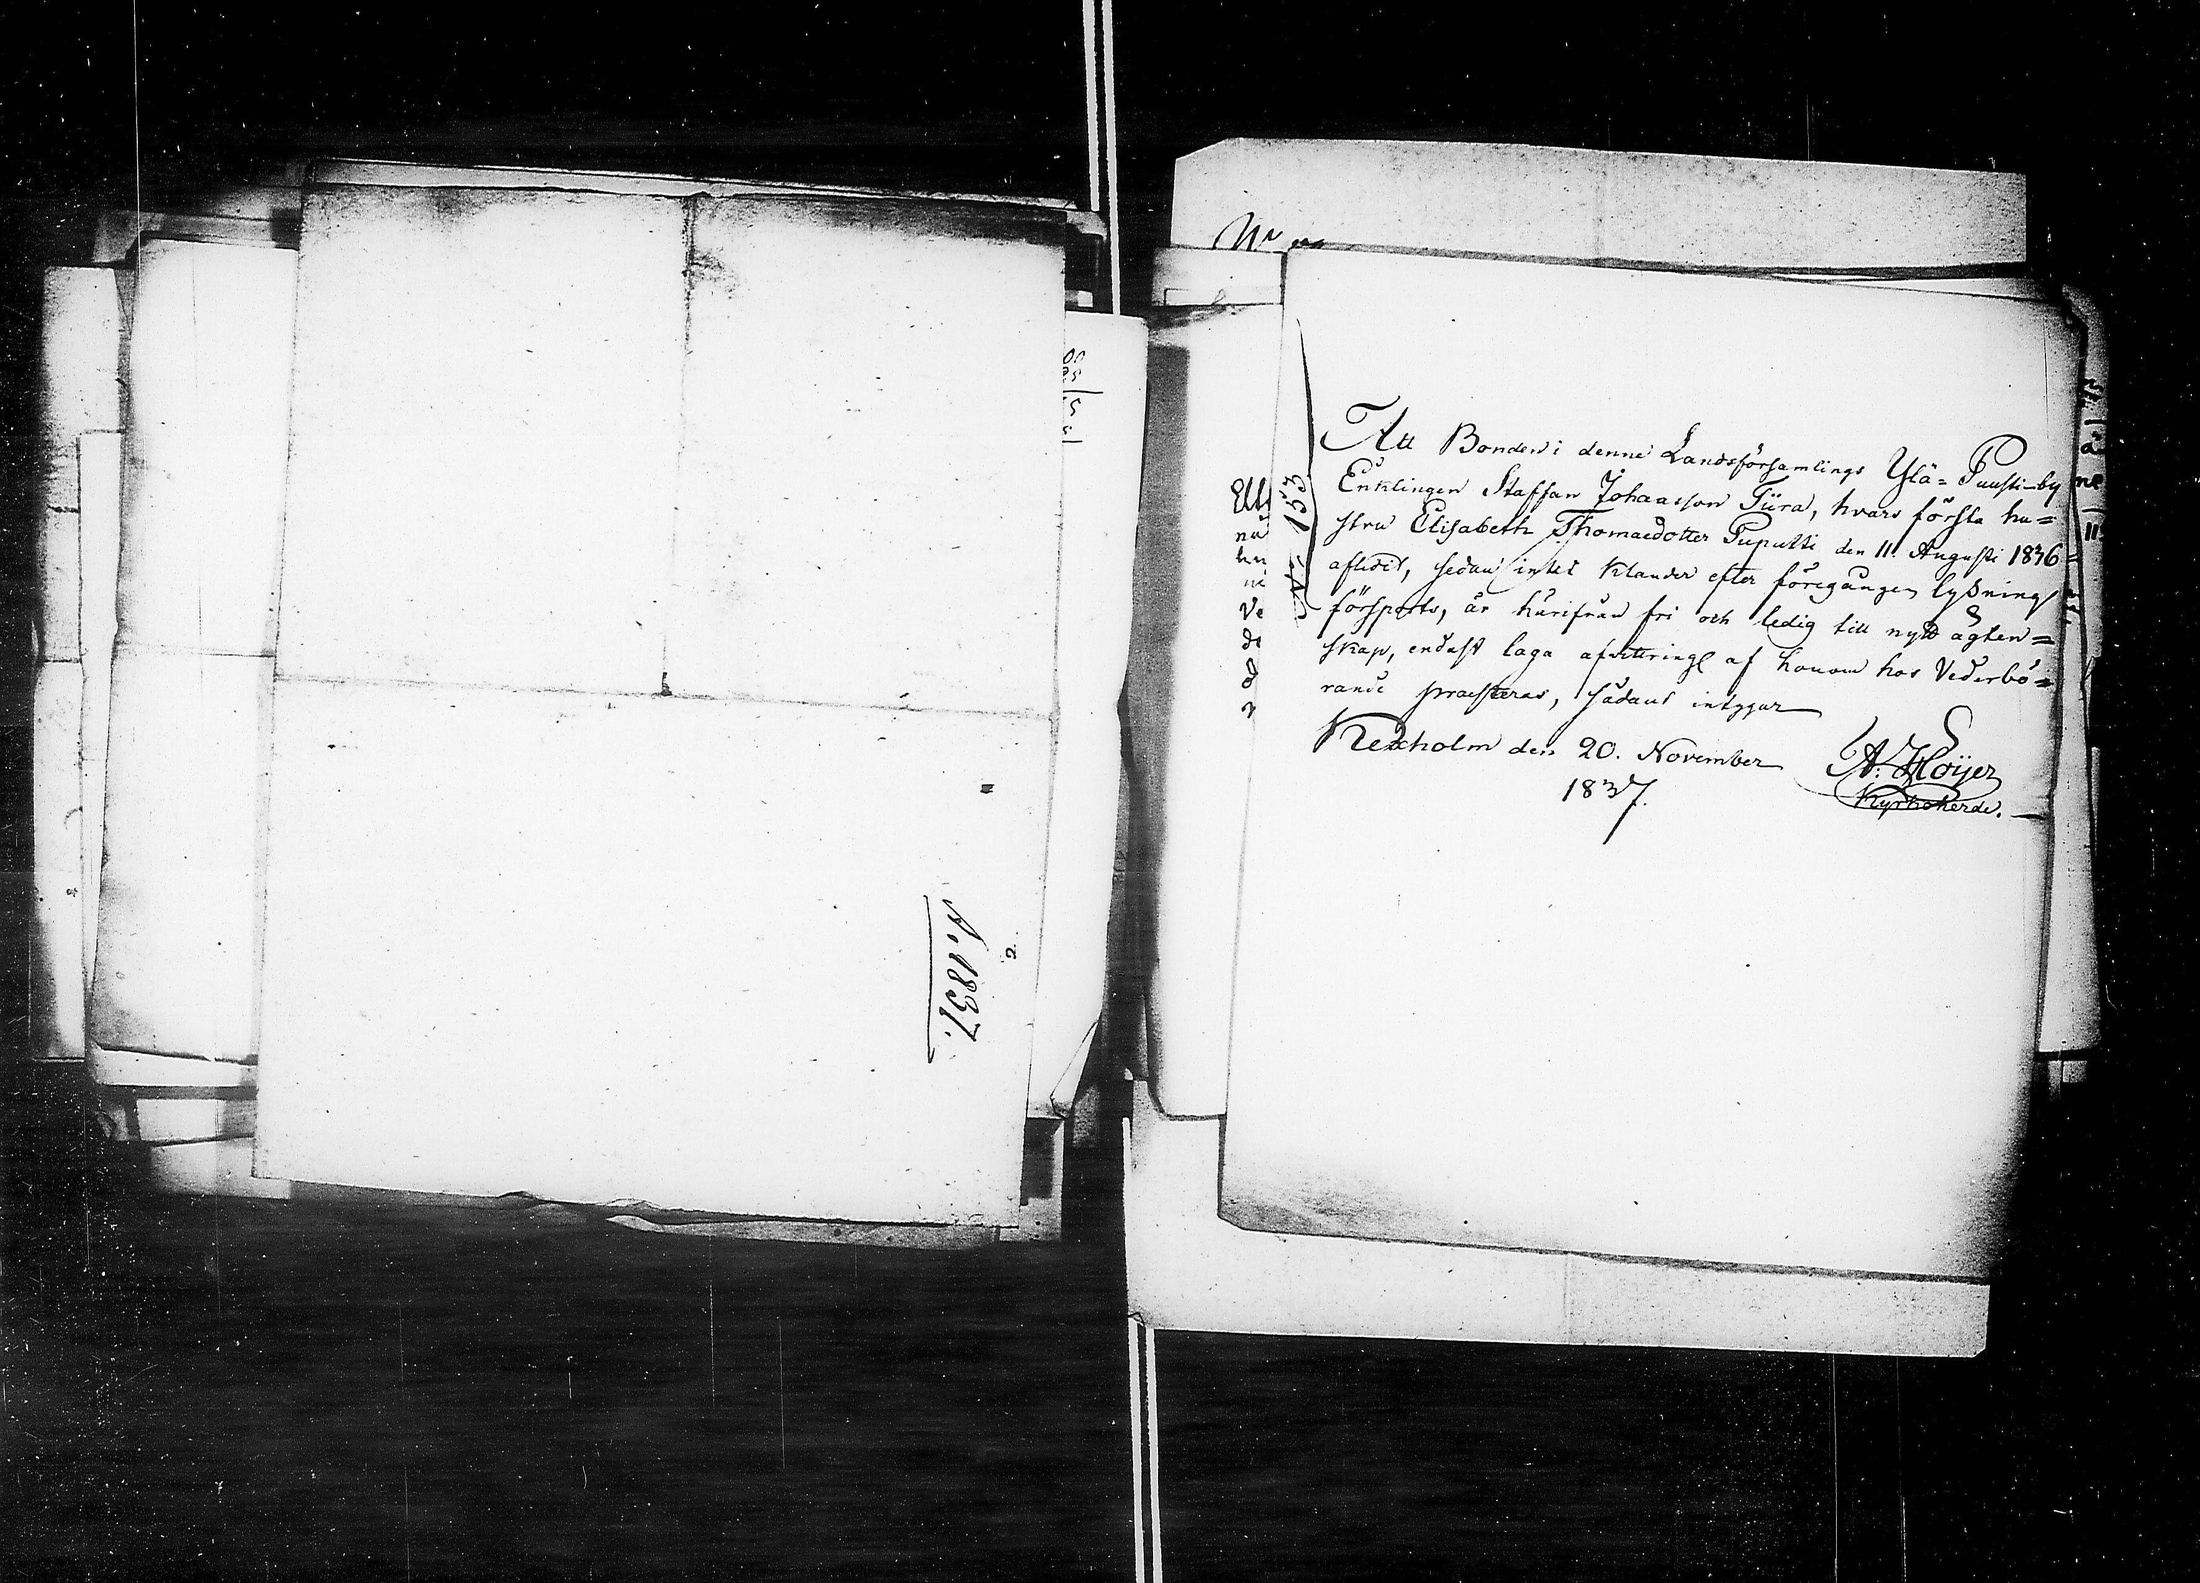 A. 1837.
2.
N. 153
Att Bonden i denne Landsförsamlings Ylä=Puusti-by
Enklingen Staffan Johansson Türa, hvars första hu=
stru Elisabeth Thomasdotter Puputti den 11. Augusti 1836
aflidit, sedan intet Klander efter föregången lysning
försports, är härifrån fri och ledig till nytt ägten=
skap, endast laga afvittring af honom hos Vederbö=
rande praesteras, sådant intygar
Kexholm den 20. November
1837.
A. Höijer
Kyrkoherde.